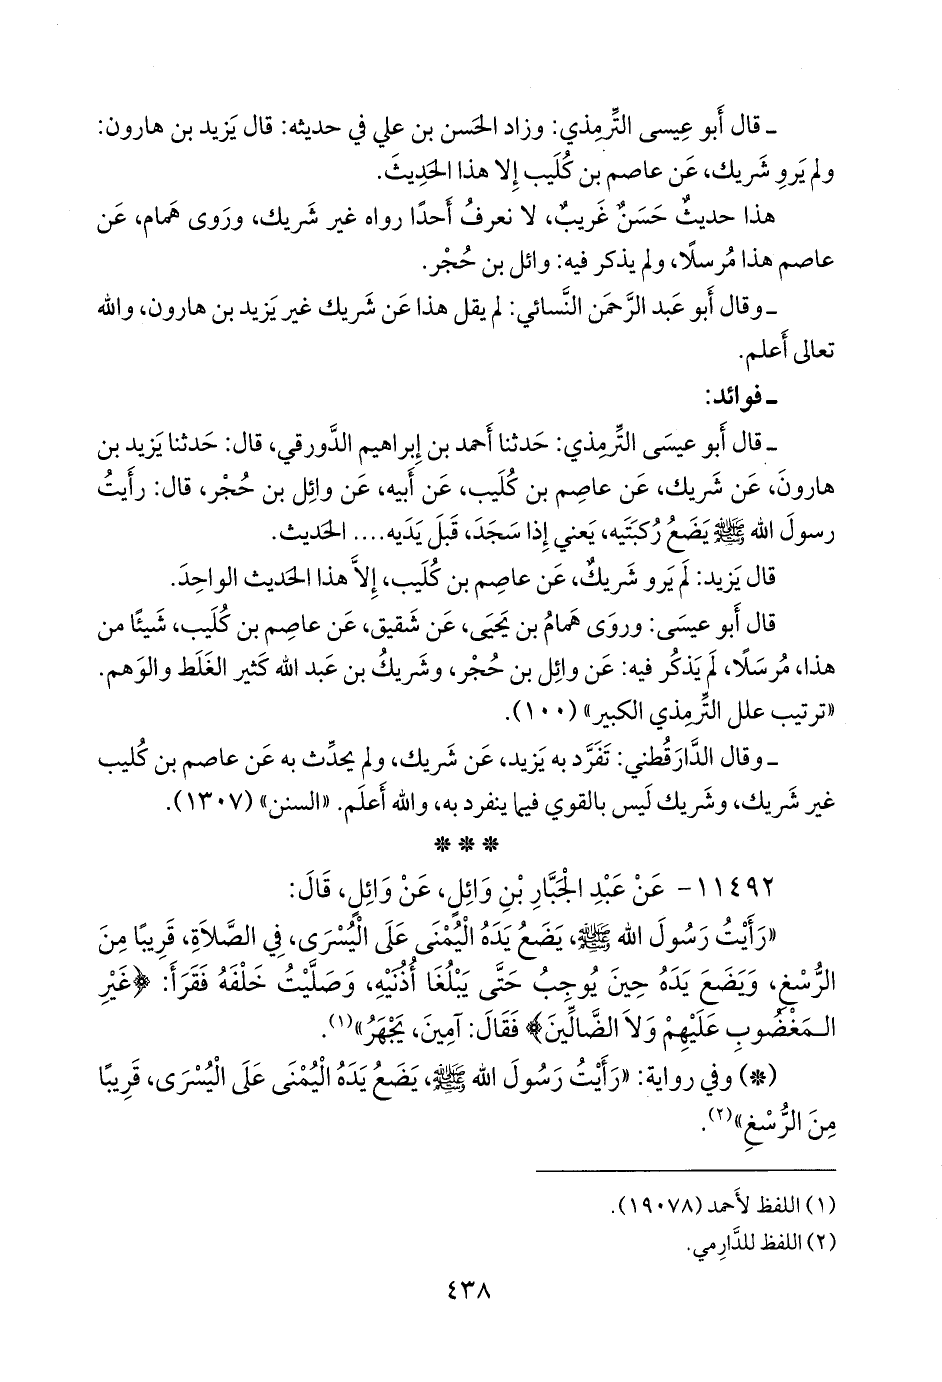 ـ قال أَبو عِيسى التِّرمِذي: وزاد الحَسن بن علي في حديثه: قال يَزيد بن هارون:
ولم يَروِ شَريك، عَن عاصم بن كُلَيب إِلا هذا الحَدِيثَ.
هذا حديثٌ حَسَنٌ غَريبٌ، لا نعرفُ أَحدًا رواه غير شَريك، ورَوى هَمام، عَن
عاصم هذا مُرسلًا، ولم يذكر فيه: وائل بن حُجْر.
ـ وقال أَبو عَبد الرَّحمَن النَّسائي: لم يقل هذا عَن شَريك غير يَزيد بن هارون، والله
تعالى أَعلم.
ـ فوائد:
ـ قال أَبو عيسَى التِّرمِذي: حَدثنا أَحمد بن إِبراهيم الدَّورقي، قال: حَدثنا يَزيد بن
هارونَ، عَن شَريك، عَن عاصِم بن كُلَيب، عَن أَبيه، عَن وائِل بن حُجْر، قال: رأَيتُ
رسولَ الله ﷺ يَضَعُ رُكبَتَيه، يَعني إِذا سَجَدَ، قَبلَ يَدَيه.... الحَديث.
قال يَزيد: لَم يَرو شَريكٌ، عَن عاصِم بن كُلَيب، إِلاَّ هذا الحَديث الواحِدَ.
قال أَبو عيسَى: وروَى هَمامُ بن يَحيَى، عَن شَقيق، عَن عاصِم بن كُلَيب، شَيئًا من
هذا، مُرسَلًا، لَم يَذكُر فيه: عَن وائِل بن حُجْر، وشَريكُ بن عَبد الله كَثير الغَلَط والوَهم.
«ترتيب علل التِّرمِذي الكبير» (١٠٠).
ـ وقال الدَّارَقُطني: تَفَرَّد به يَزيد، عَن شَريك، ولم يحدِّث به عَن عاصم بن كُليب
غير شَريك، وشَريك لَيس بالقوي فيما ينفرد به، والله أَعلَم. «السنن» (١٣٠٧).
* * *
١١٤٩٢- عَنْ عَبْدِ الْجَبَّارِ بْنِ وَائِلٍ، عَنْ وَائِلٍ، قَالَ:
«رَأَيْتُ رَسُولَ الله ﷺ، يَضَعُ يَدَهُ الْيُمْنَى عَلَى الْيُسْرَى، فِي الصَّلاَةِ، قَرِيبًا مِنَ
الرُّسْغِ، وَيَضَعَ يَدَهُ حِينَ يُوجِبُ حَتَّى يَبْلُغَا أُذُنَيْهِ، وَصَلَّيْتُ خَلْفَهُ فَقَرَأَ: ﴿غَيْرِ
الـمَغْضُوبِ عَلَيْهِمْ وَلاَ الضَّالِّينَ﴾ فَقَالَ: آمِينَ، يَجْهَرُ»(١).
(*) وفي رواية: «رَأَيْتُ رَسُولَ الله ﷺ، يَضَعُ يَدَهُ الْيُمْنَى عَلَى الْيُسْرَى، قَرِيبًا
مِنَ الرُّسْغِ»(٢).
(١) اللفظ لأَحمد (١٩٠٧٨).
(٢) اللفظ للدَّارِمي.
٤٣٨